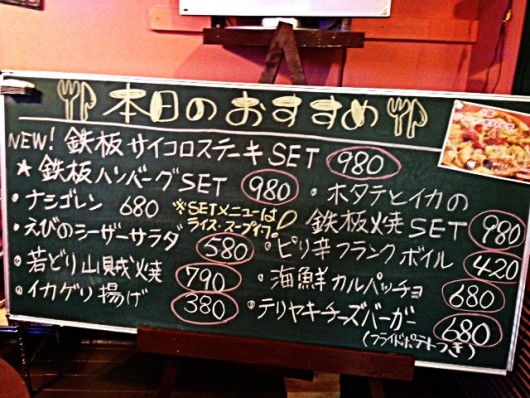 本日のおすすめ
NEW! 鉄板 サイコロステーキ SET 980
★ 鉄板ハンバーグSET 980
・ナシゴレン 680
※SETメニューは
ライス・スープ付。
・えびのシーザーサラダ 580
・若どり山賊焼 790
・イカゲリ揚げ 380
・ホタテとイカの
鉄板焼SET 980
・ピリ辛フランクボイル 420
・海鮮カルパッチョ 680
・テリヤキチーズバーガー 680
(フライドポテトつき)